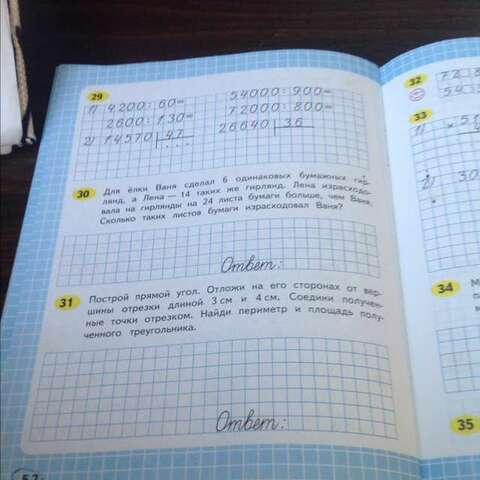 29
1) 4200:60=
54000:900=
2600:130=
72000:800=
2) 14570 47
26640 36
30 Для ёлки Ваня сделал 6 одинаковых бумажных гир-
лянд, а Лена — 14 таких же гирлянд. Лена израсходо-
вала на гирлянды на 24 листа бумаги больше, чем Ваня.
Сколько таких листов бумаги израсходовал Ваня?
Ответ:
31 Построй прямой угол. Отложи на его сторонах от вер-
шины отрезки длиной 3 см и 4 см. Соедини получен-
ные точки отрезком. Найди периметр и площадь полу-
ченного треугольника.
Ответ:
52
32
72
54
33
1) × 51
2) 30
34
35